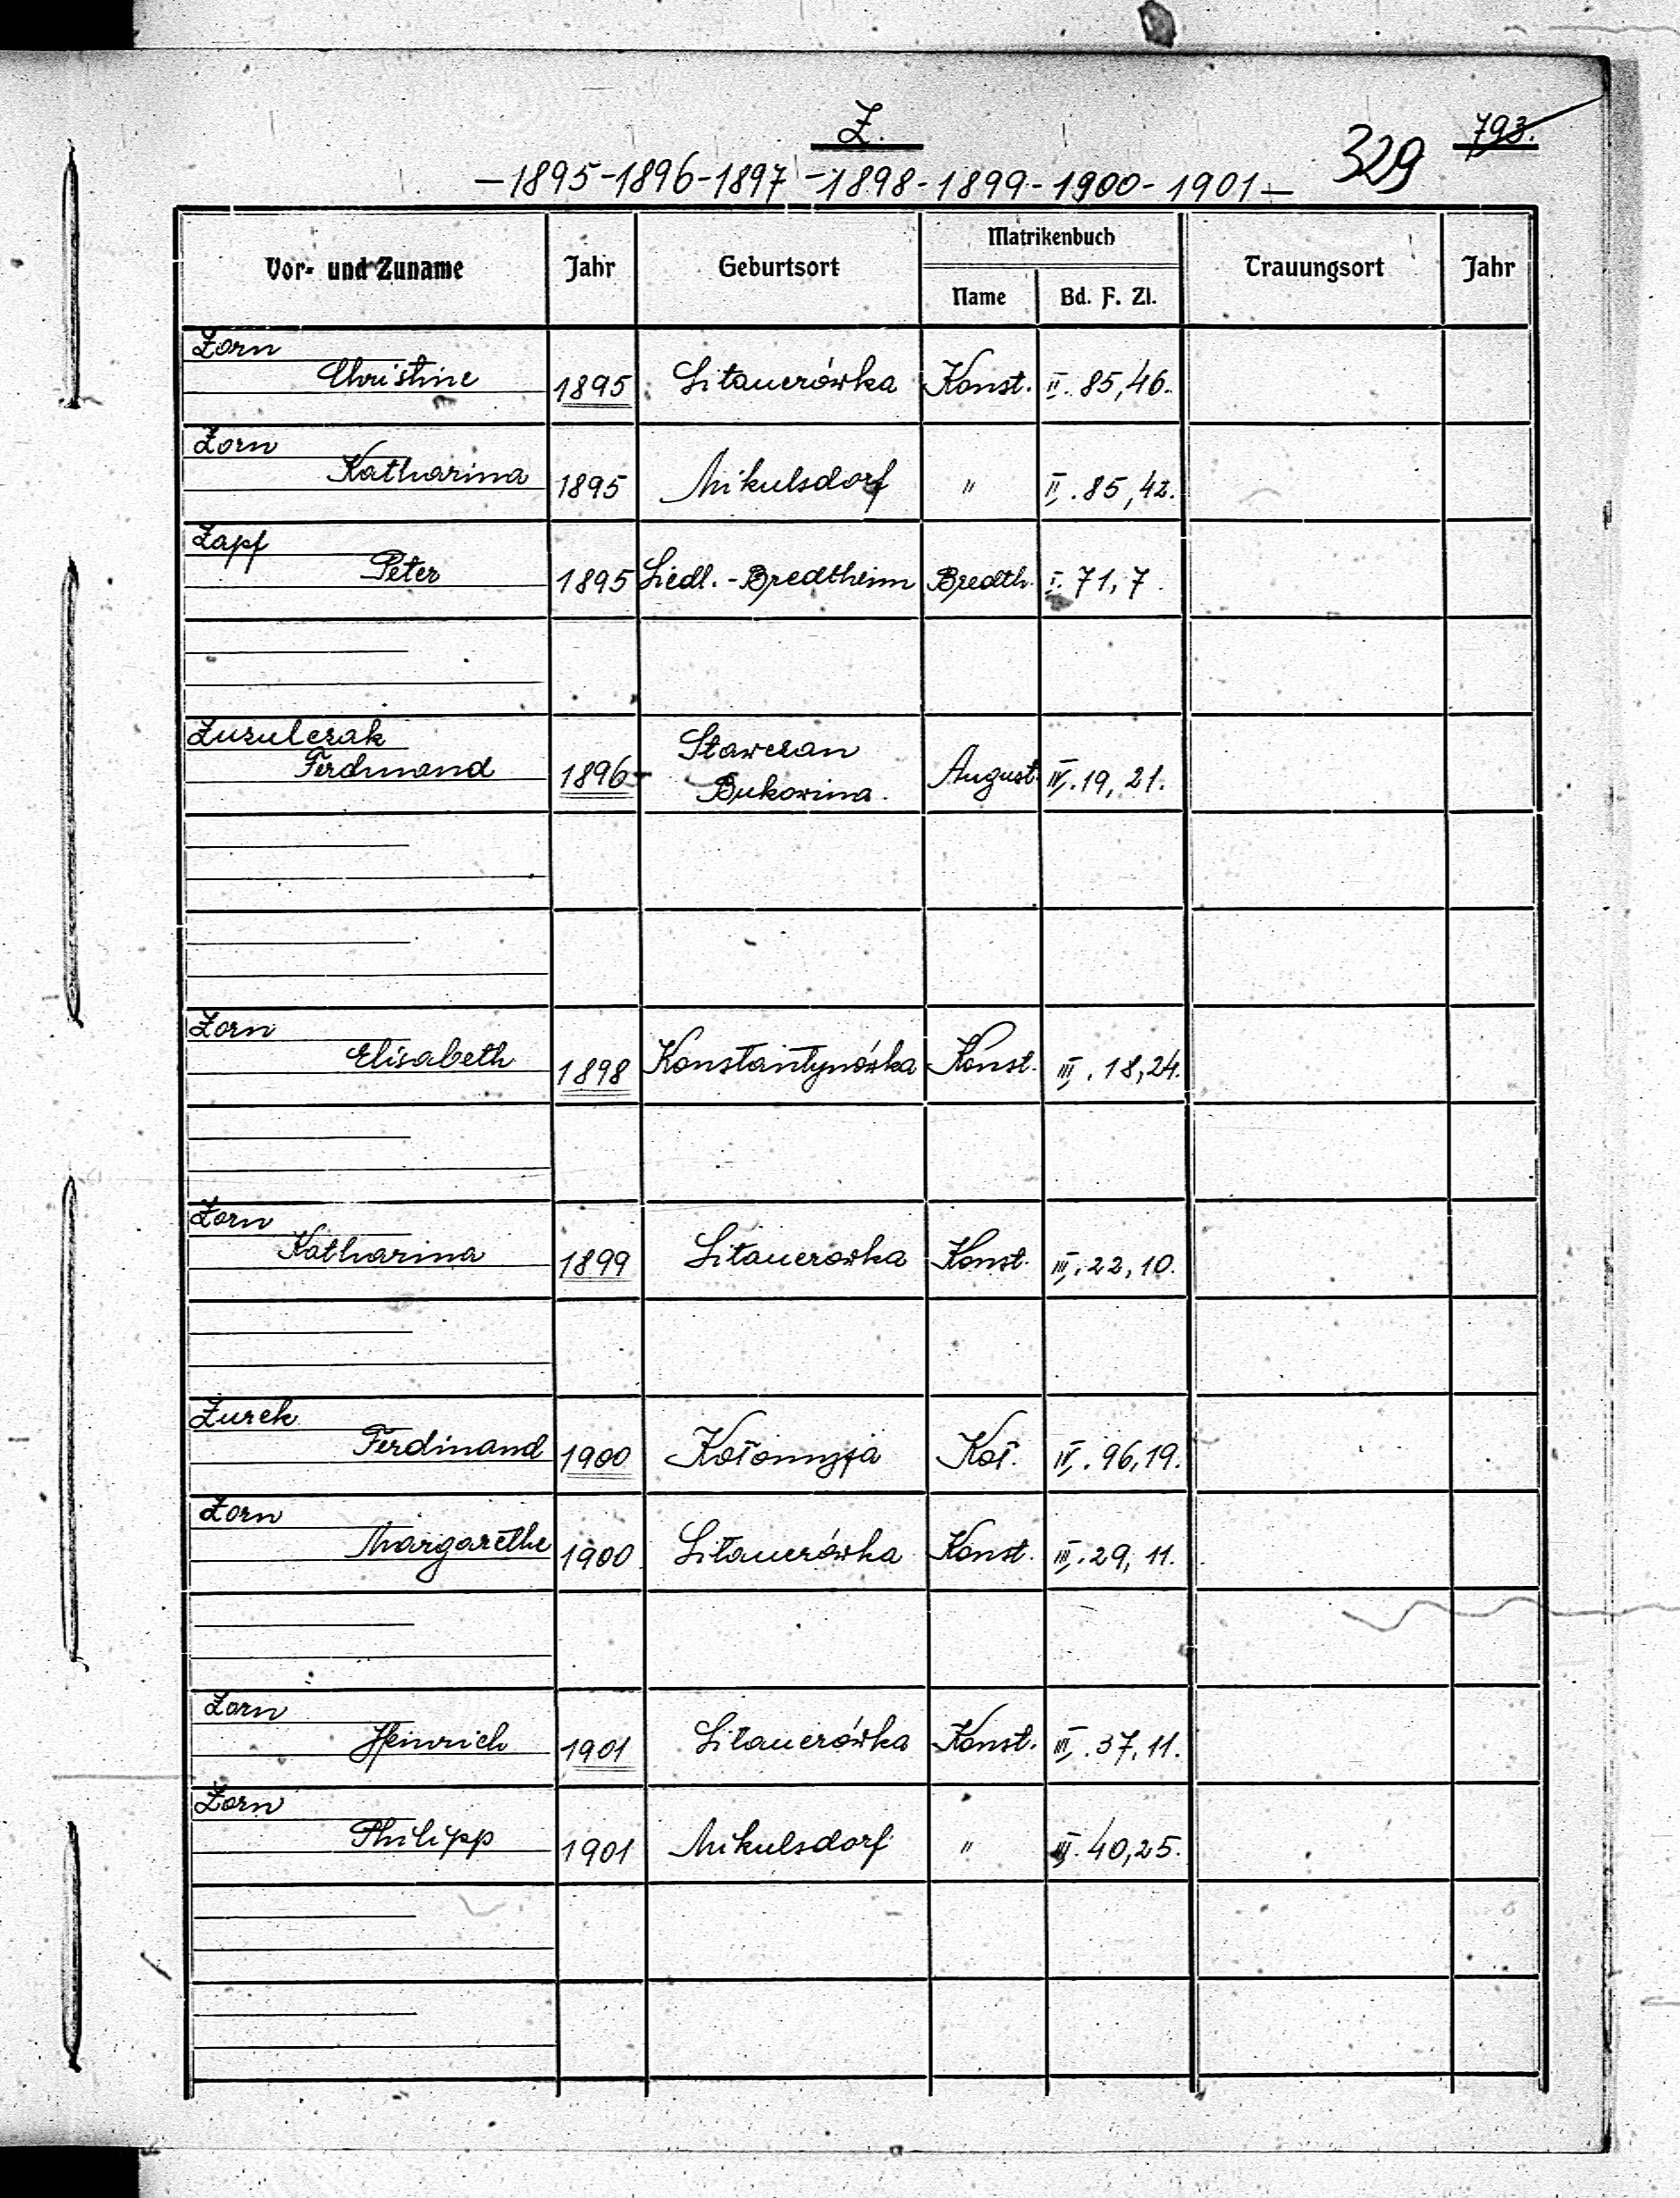 Z.
793.
329
-1895-1896-1897-1898-1899-1900-1901-
Vor- und Zuname Jahr Geburtsort Matrikenbuch Trauungsort Jahr
Name Bd. F. Zl.
Zorn
Christine 1895 Litauerówka Konst. II. 85,46.
Zorn
Katharina 1895 Mikulsdorf " II. 85,42.
Zapf
Peter 1895 Siedl.-Bredtheim Bredth. I. 71,7.
Zuzulczak
Ferdinand 1896 Stawczan
Bukowina. August. IV. 19, 21.
Zorn
Elisabeth 1898 Konstantynówka Konst. III. 18,24.
Zorn
Katharina 1899 Litauerowka Konst. III. 22,10.
Zurek
Ferdinand 1900 Kołomyja Koł. IV. 96,19.
Zorn
Margarethe 1900 Litauerówka Konst. III. 29, 11.
Zorn
Heinrich 1901 Litauerówka Konst. III. 37, 11.
Zorn
Philipp 1901 Mikulsdorf " III. 40,25.